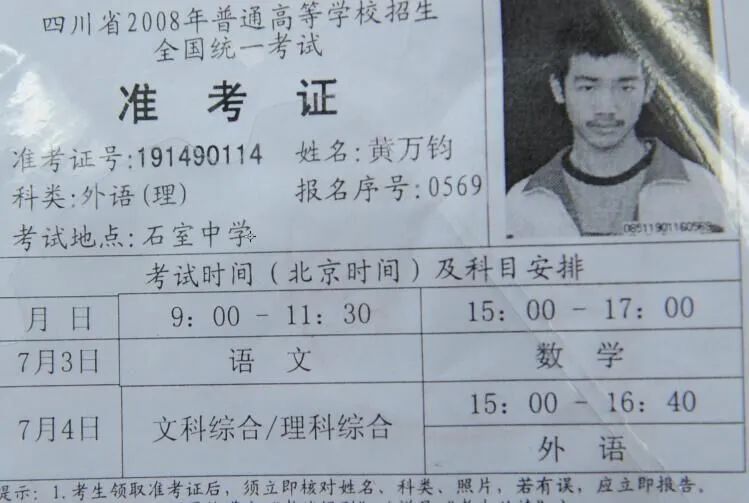 四川省2008年普通高等学校招生
全国统一考试
准 考 证
准考证号:191490114 姓名:黄万钧
科类:外语(理) 报名序号:0569
考试地点:石室中学
考试时间(北京时间)及科目安排
月 日 9:00-11:30 15:00-17:00
7月3日 语 文 数 学
7月4日 文科综合/理科综合 15:00-16:40
外 语
提示:1.考生领取准考证后,须立即核对姓名、科类、照片,若有误,应立即报告。